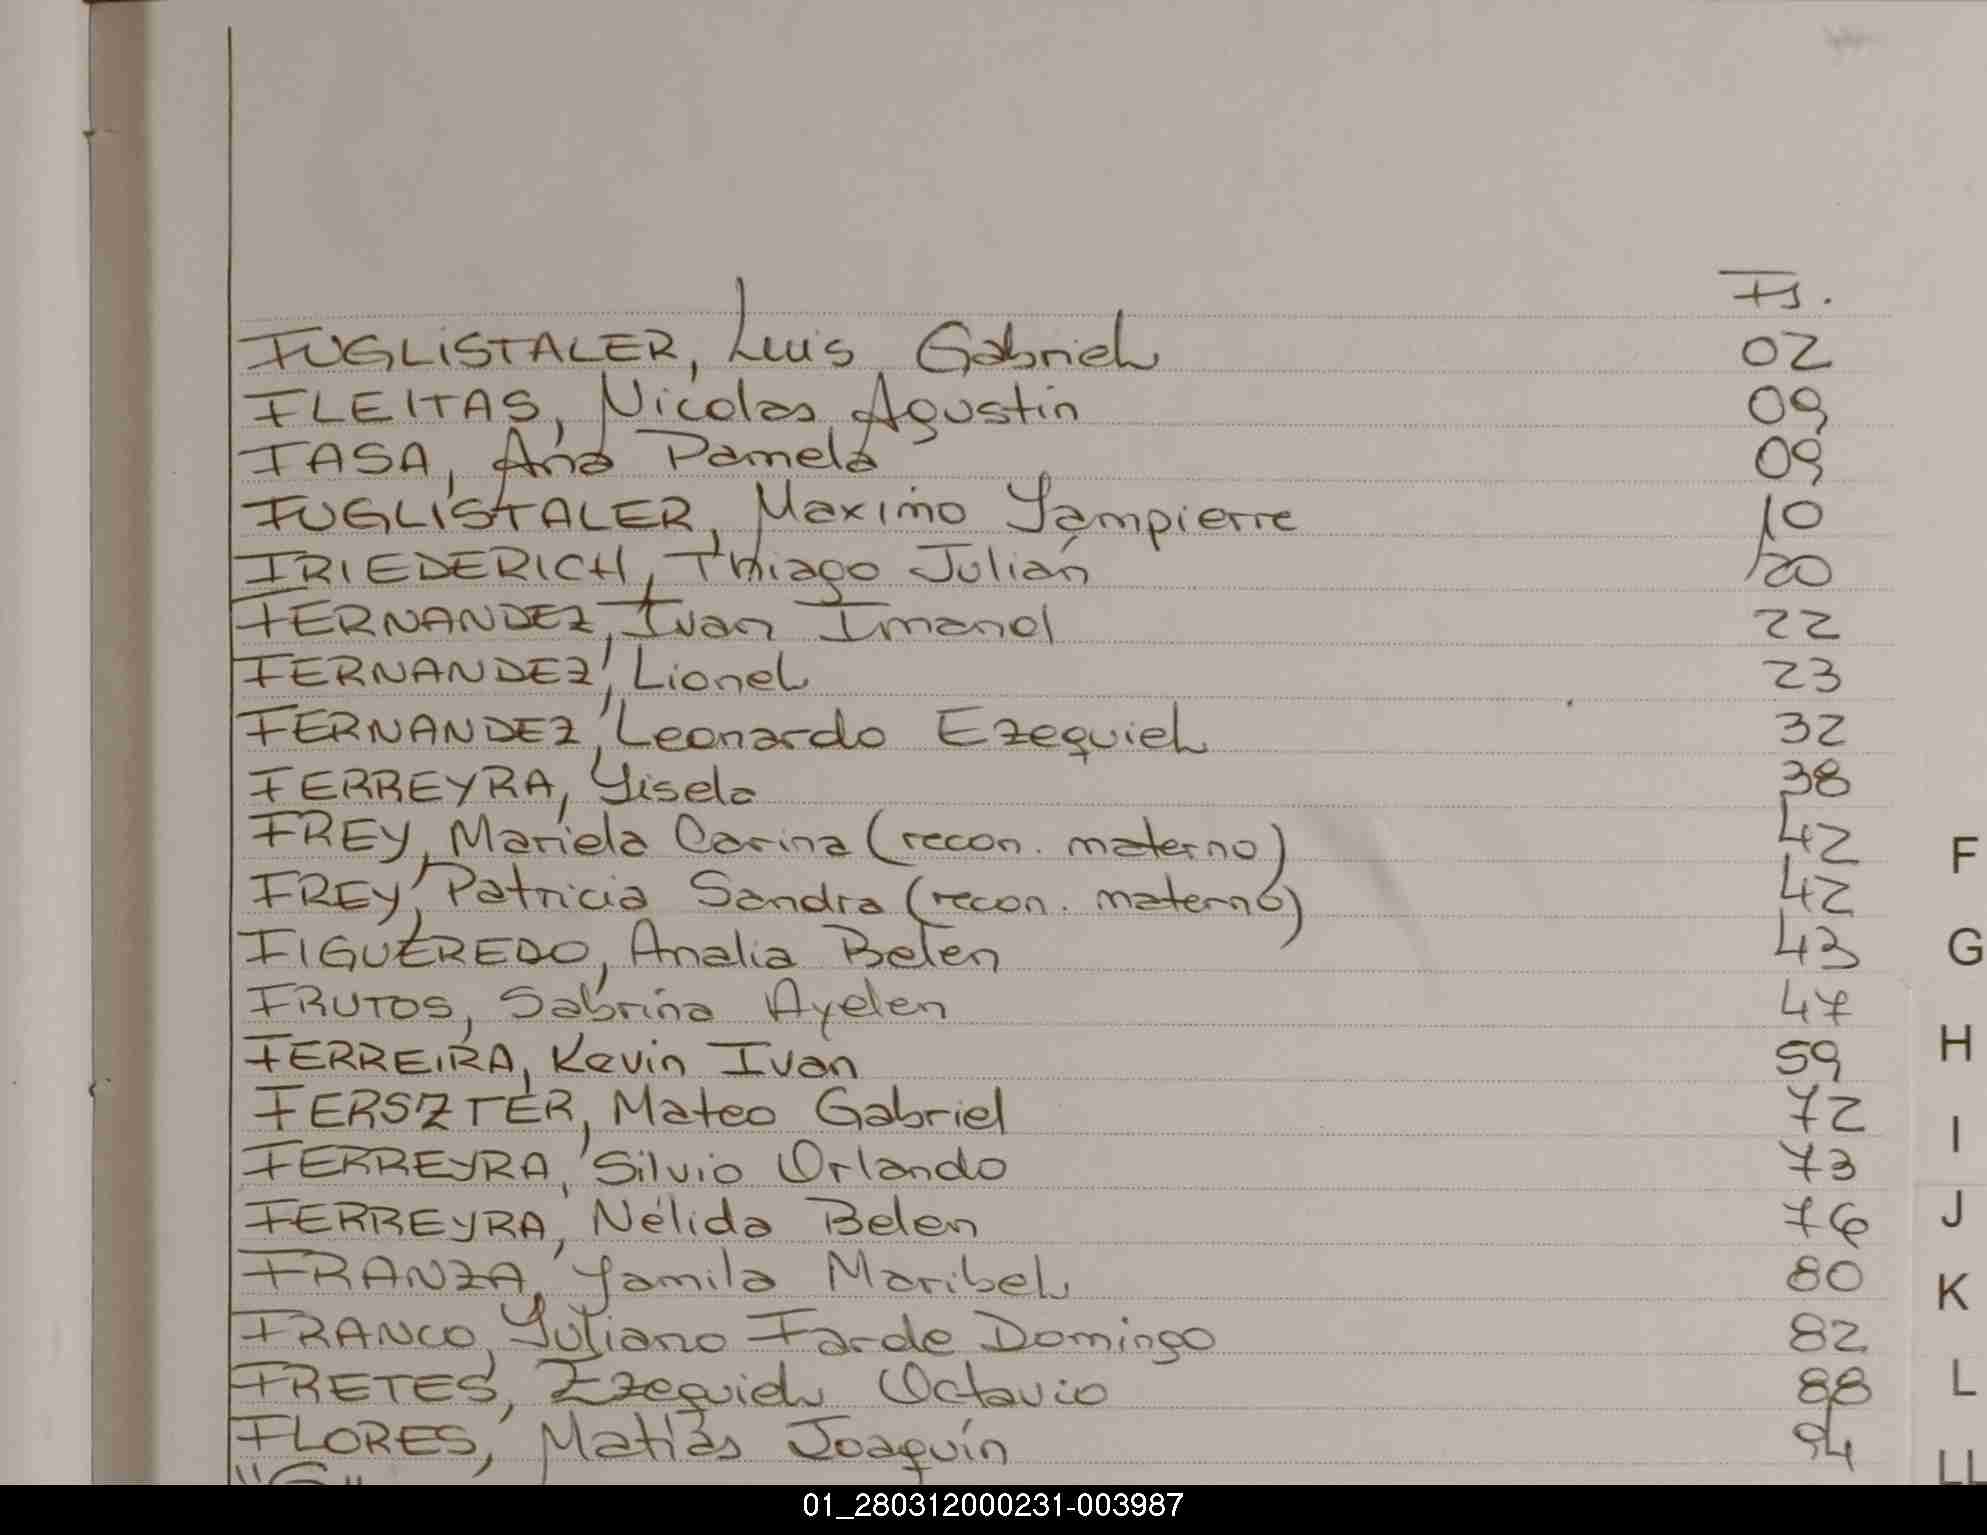 Fs.
FUGLISTALER, Luis Gabriel 02
FLEITAS, Nicolas Agustin 09
FASA, Ana Pamela 09
FUGLISTALER, Maximo Yampierre 10
FRIEDERICH, Thiago Julián 20
FERNANDEZ, Ivan Imanol 22
FERNANDEZ, Lionel 23
FERNANDEZ, Leonardo Ezequiel 32
FERREYRA, Yisela 38
FREY, Mariela Carina (recon. materno) 42
FREY, Patricia Sandra (recon. materno) 42
FIGUEREDO, Analia Belen 43
FRUTOS, Sabrina Ayelen 47
FERREIRA, Kevin Ivan 59
FERSZTER, Mateo Gabriel 72
FERREYRA, Silvio Orlando 73
FERREYRA, Nélida Belen 76
FRANZA, Yamila Maribel 80
FRANCO, Yuliano Farde Domingo 82
FRETES, Ezequiel Octavio 88
FLORES, Matías Joaquín 94
"G"
F
G
H
I
J
K
L
LL
01_280312000231-003987